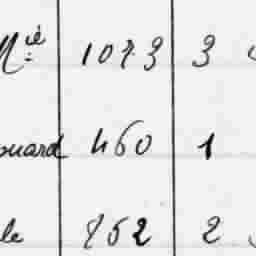 Mié 1073 3
ouard 460 1
le 752 2